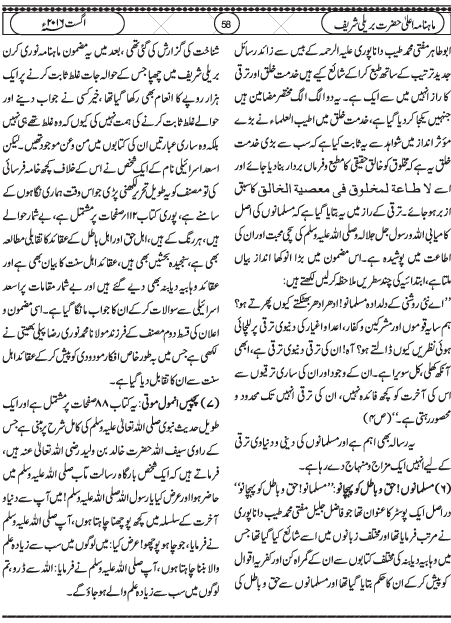 ماہنامہ اعلیٰ حضرت بریلی شریف
58
اگست ۲۰۱۶ء
ابوطاہر مفتی محمد طیب دانا پوری علیہ الرحمہ کے بیس سے زائد رسائل
جدید ترتیب کے ساتھ طبع کراکے شائع کیے ہیں خدمت خلق اور ترقی
کا راز انہیں میں سے ایک ہے۔ یہ دو الگ الگ مختصر مضامین ہیں
جنہیں یکجا کردیا گیا ہے، خدمت خلق میں طبیب العلماء نے بڑے
مؤثر انداز میں شواہد سے یہ ثابت کیا ہے کہ سب سے بڑی خدمت
خلق یہ ہے کہ مخلوق کو خالق حقیقی کا مطیع و فرماں بردار بنادیا جائے اور
اسے لا طاعة لمخلوق فی معصية الخالق کا سبق
ازبر ہو جائے۔ ترقی کے راز میں یہ بتایا گیا ہے کہ مسلمانوں کی اصل
کامیابی اللہ ورسول جل جلالہ و صلی اللہ علیہ وسلم کی سچی محبت اور ان کی
اطاعت میں پوشیدہ ہے۔ اس مضمون میں بڑا انوکھا انداز بیاں
ملتا ہے، ابتدائی کی چند سطریں ملاحظہ کرلیں لکھتے ہیں:
”اے نئی روشنی کے دلدادہ مسلمانو! ادھر ادھر بھٹکتے کیوں پھرتے ہو؟
ہم سایہ قوموں اور مشرکین و کفار، اعدا و اغیار کی دنیوی ترقی پر للچائی
ہوئی نظریں کیوں ڈالتے ہو؟ آہ! ان کی ترقی دنیوی ترقی ہے، ابھی
آنکھ کھلی، کل سویرا ہے۔ ان کے وجود اور ان کی ساری ترقیوں سے
اس کی آخرت کو کچھ فائدہ نہیں، ان کی ترقی انہیں تک محدود و
محصور رہتی ہے۔“ (ص۴)
یہ رسالہ بھی اہم ہے اور مسلمانوں کی دینی و دنیاوی ترقی
کے لیے انہیں ایک مزاج و منہاج دے رہا ہے۔
(۶) مسلمانوں! حق و باطل کو پہچانو: ”مسلمانو! حق و باطل کو پہچانو“
دراصل ایک پوسٹر کا عنوان تھا جو فاضل جلیل مفتی محمد طیب دانا پوری
نے مرتب فرمایا تھا اور مختلف زبانوں میں اسے شائع کیا گیا تھا جس
میں وہابیہ دیابنہ کی مختلف کتابوں سے ان کے گمراہ کن اور کفریہ اقوال
کو پیش کرکے ان کا حکم بتایا گیا تھا اور مسلمانوں سے حق و باطل کی
شناخت کی گزارش کی گئی تھی، بعد میں یہ مضمون ماہنامہ نوری کرن
بریلی شریف میں چھپا جس کے حوالہ جات غلط ثابت کرنے پر ایک
ہزار روپے کا انعام بھی رکھا گیا تھا، خیر کسی نے جواب دینے اور
حوالے غلط ثابت کرنے کی ہمت نہیں کی کیوں کہ وہ غلط تھے ہی نہیں
بلکہ وہ ساری عبارتیں ان کی کتابوں میں من و عن موجود تھیں۔ لیکن
اسعد اسرائیلی نام کے ایک شخص نے اس کے خلاف کچھ خامہ فرسائی
کی تو مصنف کو یہ طویل تحریر لکھنی پڑی جو اس وقت ہماری نگاہوں کے
سامنے ہے، پوری کتاب ۱۱۲ صفحات پر مشتمل ہے، بے شمار حوالے
ہیں، ہر رنگ کے ہیں، اہل حق اور اہل باطل کے عقائد کا تقابلی مطالعہ
بھی ہے، سنجیدہ بحثیں بھی ہیں، عقائد اہل سنت کا بیان بھی ہے اور
عقائد وہابیہ دیابنہ بھی دیے گئے ہیں اور بے شمار مقامات پر اسعد
اسرائیلی سے سوالات کرکے ان کا جواب مانگا گیا ہے۔ اسی مضمون و
اعلان کی قسط دوم مصنف کے فرزند مولانا محمد نوری رضا پیلی بھیتی نے
لکھی ہے جس میں بہ طور خاص افکار مودودی کو پیش کرکے عقائد اہل
سنت سے ان کا تقابل کردیا گیا ہے۔
(۷) پچیس انمول موتی: یہ کتاب ۸۸ صفحات پر مشتمل ہے اور ایک
طویل حدیث نبوی صلی اللہ علیہ وسلم کی کامل شرح پر مبنی ہے جس
کے راوی سیف اللہ حضرت خالد بن ولید رضی اللہ تعالیٰ عنہ ہیں،
فرماتے ہیں کہ ایک شخص بارگاہ رسالت مآب صلی اللہ علیہ وسلم میں
حاضر ہوا اور عرض کیا یا رسول اللہ صلی اللہ علیہ وسلم! میں آپ سے دنیا و
آخرت کے سلسلہ میں کچھ پوچھنا چاہتا ہوں، آپ صلی اللہ علیہ وسلم
نے فرمایا، جو چاہو پوچھو! عرض کیا: میں لوگوں میں سب سے زیادہ علم
والا بننا چاہتا ہوں، آپ صلی اللہ علیہ وسلم نے فرمایا: اللہ سے ڈرو، تم
لوگوں میں سب سے زیادہ علم والے ہو جاؤ گے۔